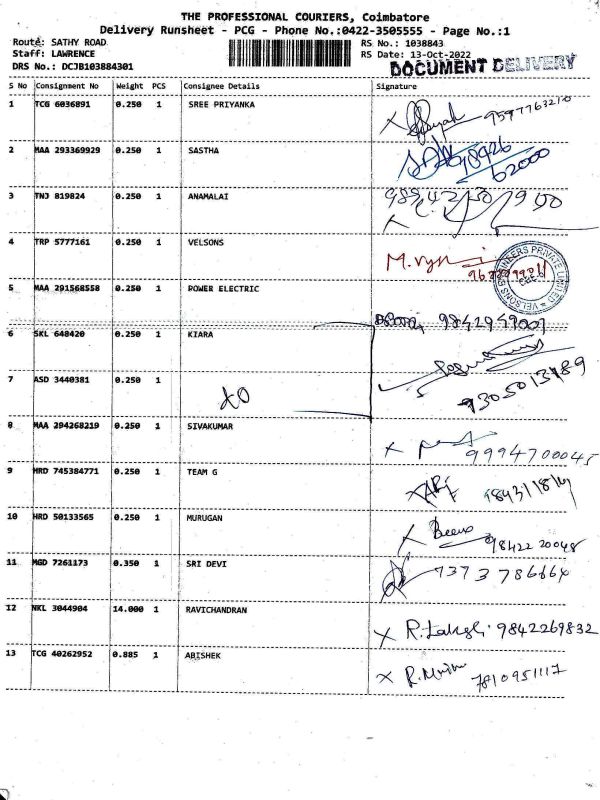 THE PROFESSIONAL COURIERS, Coimbatore
Delivery Runsheet - PCG - Phone No.:0422-3505555 - Page No.:1
Route: SATHY ROAD RS No.: 1038843
Staff: LAWRENCE RS Date: 13-Oct-2022
DRS No.: DCJB103884301 DOCUMENT DELIVERY
S No Consignment No Weight PCS Consignee Details Signature
1 TCG 6036891 0.250 1 SREE PRIYANKA 9597763210
2 MAA 293369929 0.250 1 SASTHA 98926
62000
3 TNJ 819824 0.250 1 ANAMALAI
4 TRP 5777161 0.250 1 VELSONS
5 MAA 291568558 0.250 1 POWER ELECTRIC
9842949007
6 SKL 648420 0.250 1 KIARA
7 ASD 3440381 0.250 1 9305013489
8 MAA 294268219 0.250 1 SIVAKUMAR 9994700045
9 HRD 745384771 0.250 1 TEAM G
10 HRD 50133565 0.250 1 MURUGAN Beena
9842220048
11 MGD 7261173 0.350 1 SRI DEVI 7373786664
12 NKL 3044904 14.000 1 RAVICHANDRAN 9842269832
13 TCG 40262952 0.885 1 ABISHEK 7810951117